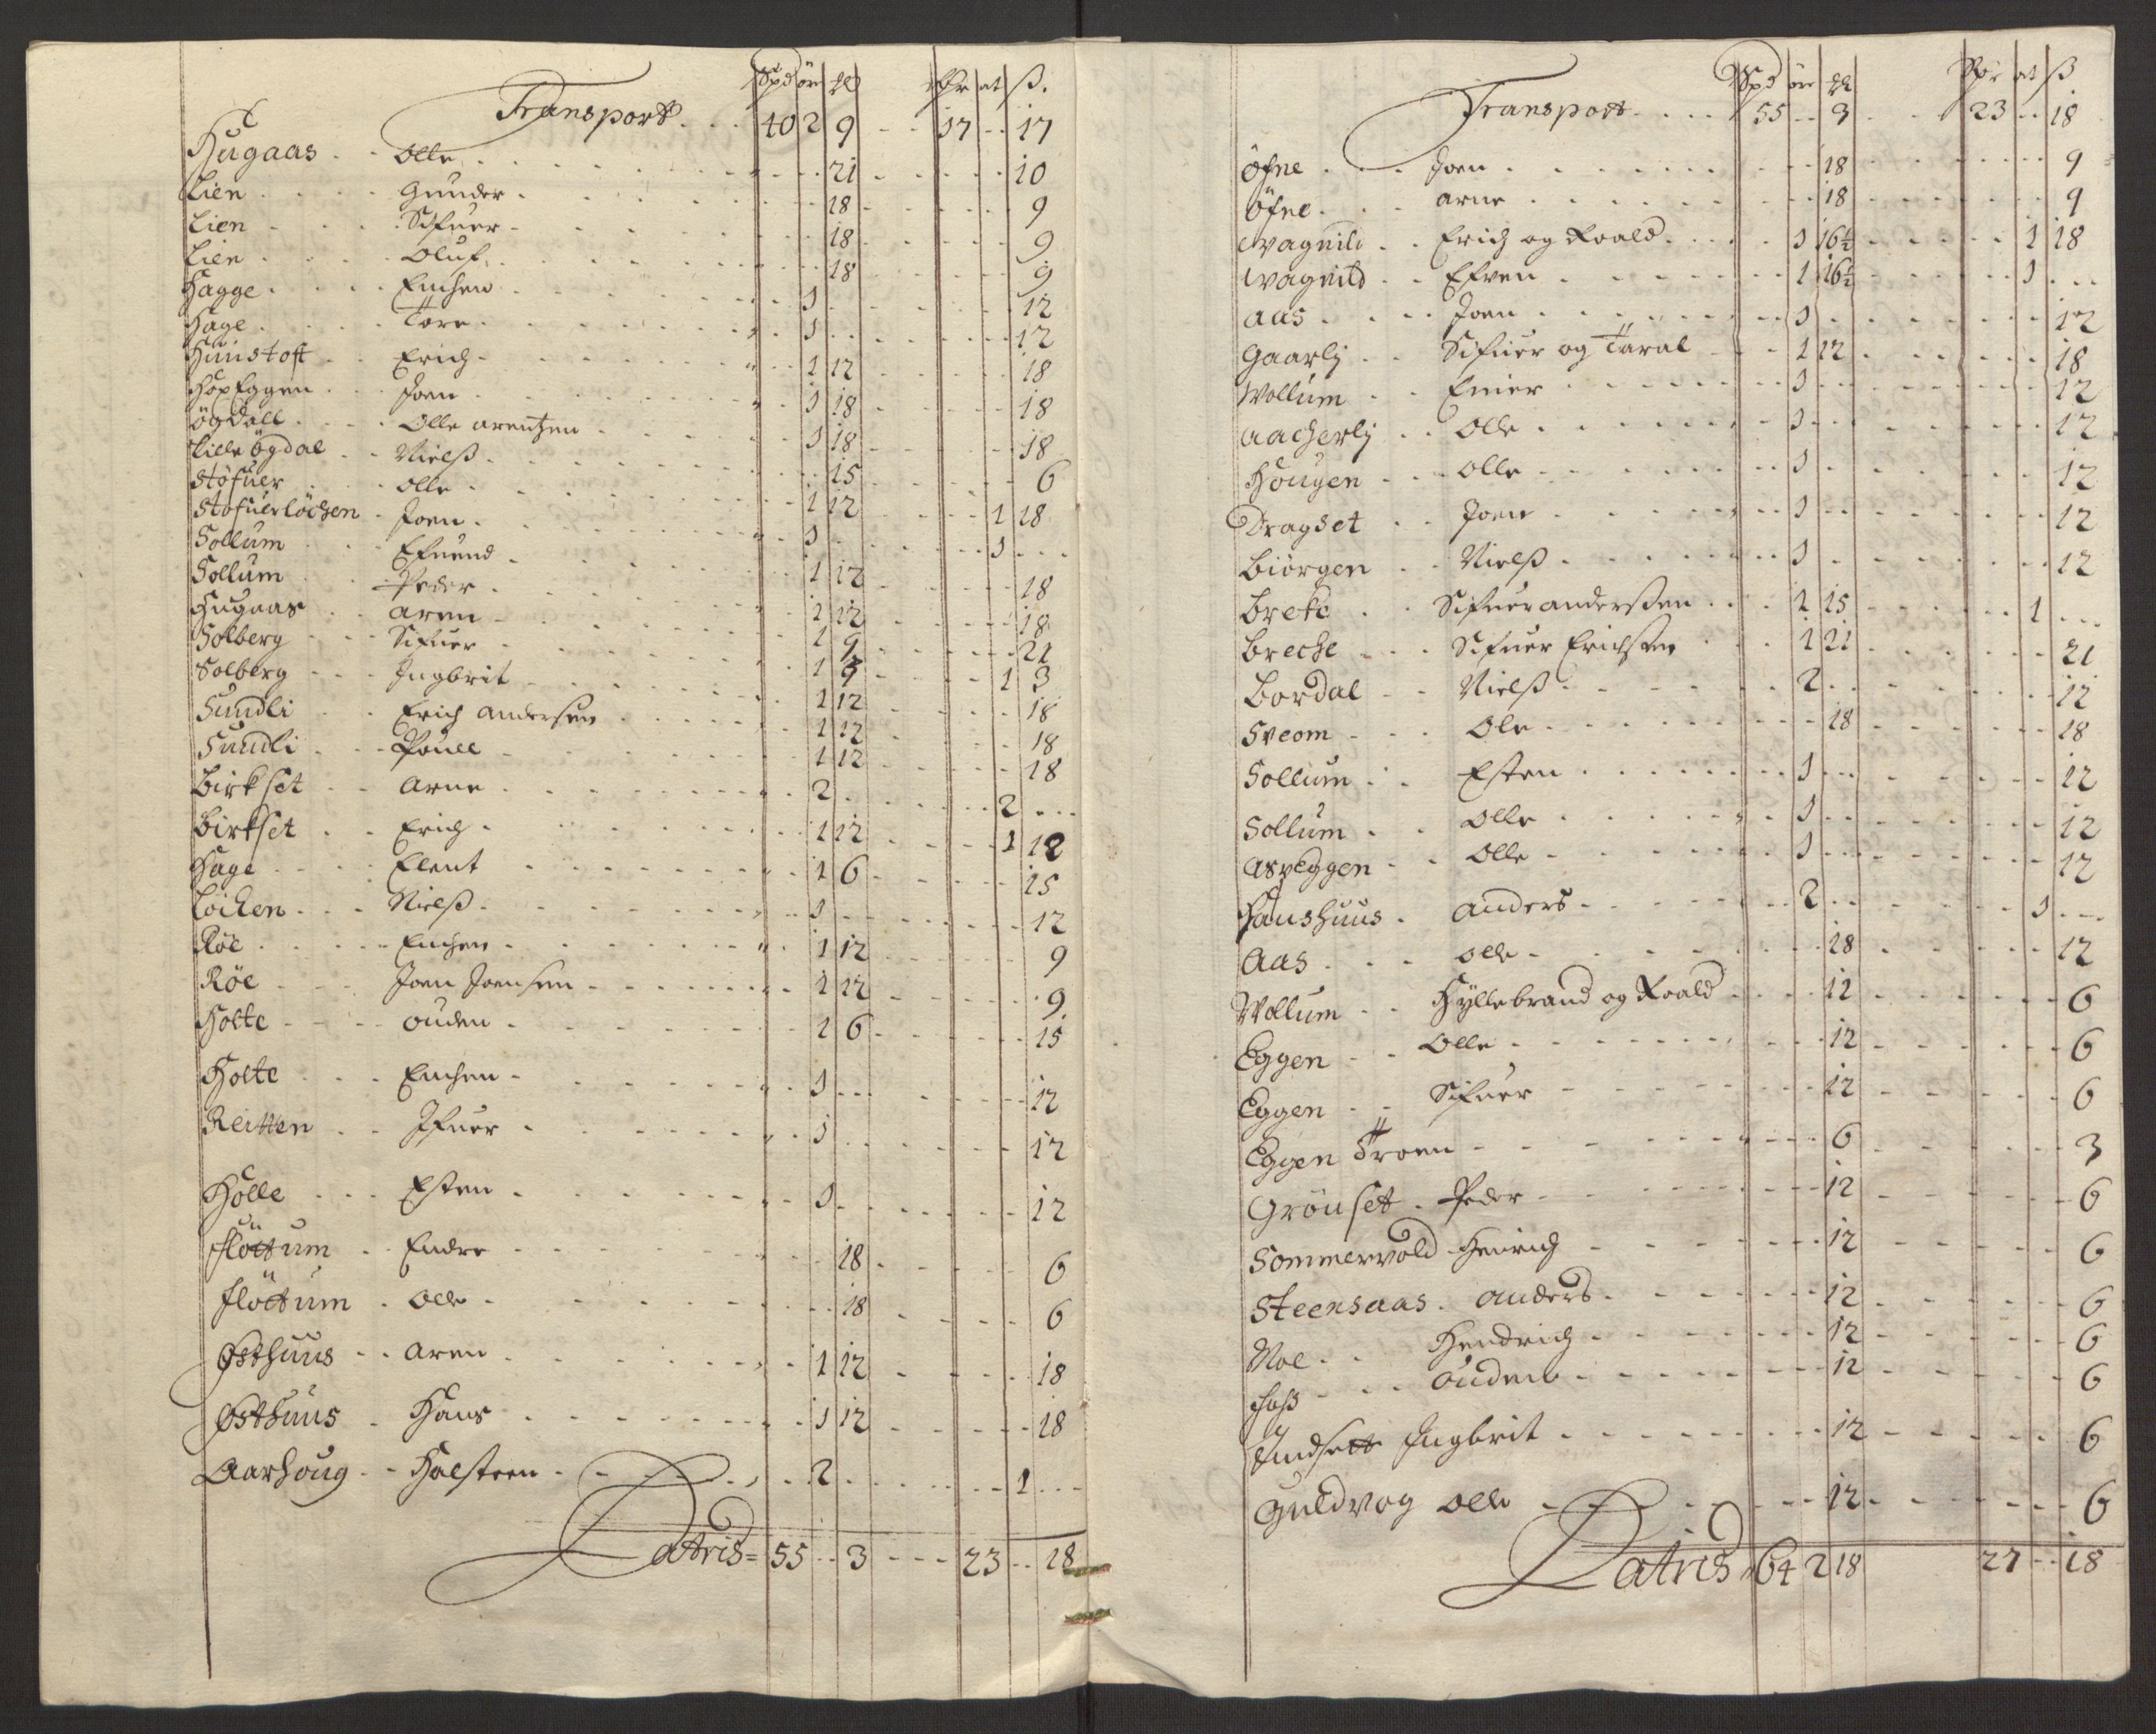 Spd ör ll Rdr ort ß.
Transport . . . 40 2 9 - - 17 - - 17
Hugaas . . Olle . . . 21 . . . 10
Lien . . . Gunder . . . 18 . . . 9
Lien . . . Sifuer . . . 18 . . . 9
Lien . . . Oluf . . . 18 . . . 9
Hagge . . . Einchen . . . 1 . . . 12
Hage . . . Tore . . . 1 . . . 12
Hunstoft . . Erich . . . 1 12 . . . 18
HopEggen . . Joen . . . 1 18 . . . 18
ögdall . . . Olle arentzen . . . 1 18 . . . 18
Lille ögdal . . Nielß . . . 15 . . . 6
Stöfuer . . Olle . . . 1 12 . . . 1 18
Stöfuerlöchen . Joen . . . 1 . . . 1 . . .
Sollum . . Efuend . . . 1 12 . . . 18
Sollum . . Peder . . . 1 12 . . . 18
Hugaas . . aren . . . 1 9 . . . 21
Solberg . . Sifuer . . . 1 9 . . . 1 3
Solberg . . Ingbrit . . . 1 12 . . . 18
Sundli . . Erich Andersen . . . 1 12 . . . 18
Sundli . . Pouel . . . 1 12 . . . 18
Birkset . . Arne . . . 2 . . . 2 . . .
Birkset . . Erich . . . 1 12 . . . 1 12
Hage . . . Elent . . . 1 6 . . . 15
Löcken . . . Nielß . . . 1 . . . 12
Röe . . . Einchen . . . 1 12 . . . 9
Röe . . . Joen Joensen . . . 1 12 . . . 9
Holte . . . ouden . . . 1 6 . . . 15
Holte . . . Einchen . . . 1 . . . 12
Reitten . . Ifuer . . . 1 . . . 12
Holle . . . Esten . . . 1 . . . 12
flöttum . . Endre . . . 18 . . . 6
flöttum . Olle . . . 18 . . . 6
Østhuus . . Aren . . . 1 12 . . . 18
Østhuus . Hans . . . 1 12 . . . 18
Aarhoug . . Halsteen . . . 2 . . . 1 . . .
Latris = 55 . . 3 - - - 23 . . 18
Spd ör ll Rdr ort ß
Transport . . . 55 . . 3 . . 23 . . 18
Öfne . . . Joen . . . 18 . . . 9
Öfne . . . arne . . . 18 . . . 9
Wagnild . . Erich og Roald . . . 1 16½ . . . 1 18
Wagnild . . Efven . . . 1 16½ . . . 1 . . .
Aas . . . Joen . . . 1 . . . 12
Gaarlj . . Sifuer og Taral . . . 1 12 . . . 18
Wollum . . Einer . . . 1 . . . 12
Aacherlj . . Olle . . . 1 . . . 12
Hougen . . Olle . . . 1 . . . 12
Dragset . . Joen . . . 1 . . . 12
Biörgen . . Nielß . . . 1 . . . 12
Breke . . Sifuer anderßen . . . 1 15 . . . 1 . . .
Breche . . . Sifuer Erichsen . . . 1 21 . . . 21
Bordal . . Nielß . . . 2 . . . 12
Sveom . . . Ole . . . 18 . . . 18
Sollum . . Esten . . . 1 . . . 12
Sollum . . Olle . . . 1 . . . 12
Asveggen . . Olle . . . 1 . . . 12
Hanshuus . anders . . . 2 . . . 1 . . .
Aas . . . olle . . . 18 . . . 12
Wollum . . Hyllebrand og Roald . . . 12 . . . 6
Eggen . . Olle . . . 12 . . . 6
Eggen . . Sifuer . . . 12 . . . 6
Eggen Troen . . . 6 . . . 3
Grönset . Peder . . . 12 . . . 6
Sommervold Henrich . . . 12 . . . 6
Steensaas . anders . . . 12 . . . 6
Moe . . Hendrich . . . 12 . . . 6
foss . . . ouden . . . 12 . . . 6
Indsett Ingbrit . . . 12 . . . 6
Guldvog Olle . . . 12 . . . 6
Latris 64 2 18 27 . . 18